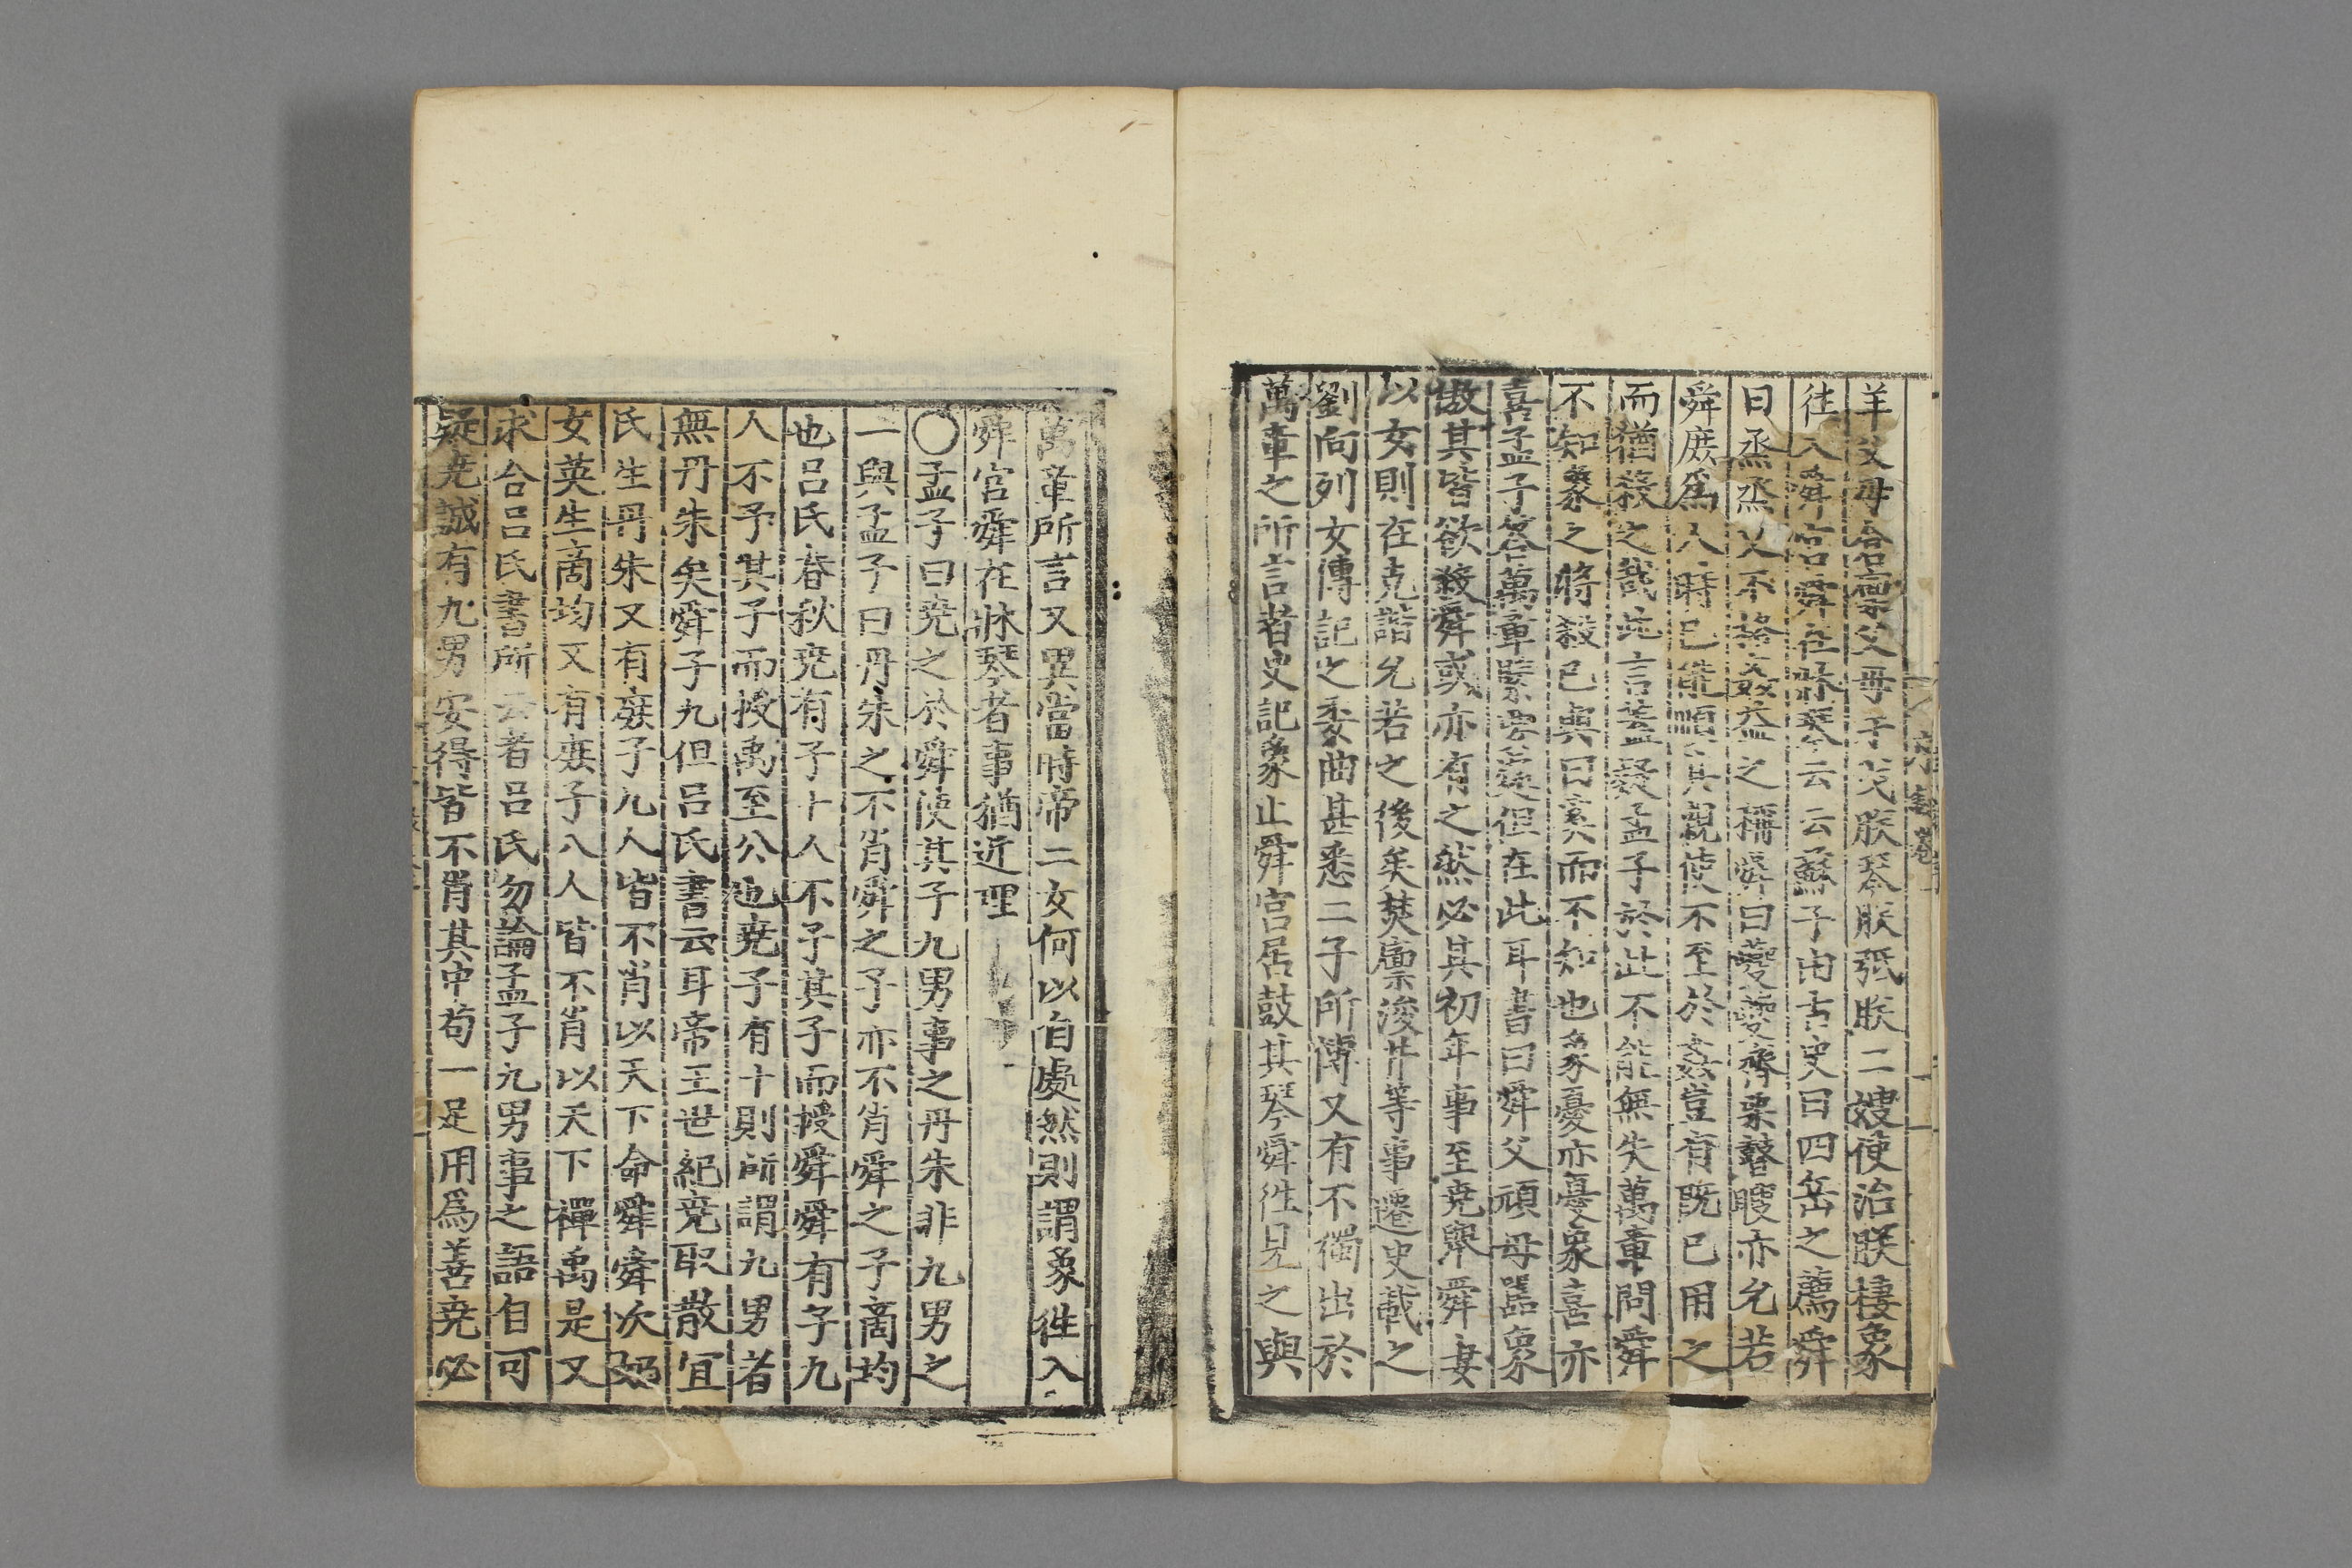 羊父母倉廩父母干戈朕琴朕弤朕二嫂使治朕棲象
往入舜宮舜在牀琴云云蘇子由古史曰四岳之薦舜
曰烝烝乂不格姦益之稱舜曰夔夔齊栗瞽瞍亦允若
舜庶爲人時已能順其親使不至於姦豈有旣已用之
而猶殺之哉此言蓋疑孟子於此不能無失萬章問舜
不知象之將殺己與曰奚而不知也象憂亦憂象喜亦
喜孟子答萬章緊要處但在此耳書曰舜父頑母嚚象
傲其皆欲殺舜或亦有之然必其初年事至堯擧舜妻
以女則在克諧允若之後矣焚廩浚井等事遷史載之
劉向列女傳記之委曲甚悉二子所傳又有不獨出於
萬章之所言者史記象止舜宮居鼓其琴舜徃見之與
萬章所言又異當時帝二女何以自處然則謂象徃入
舜宮舜在牀琴者事猶近理
○孟子曰堯之於舜使其子九男事之丹朱非九男之
一與孟子曰丹朱之不肖舜之子亦不肖舜之子商均
也呂氏春秋堯有子十人不予其子而授舜舜有子九
人不予其子而授禹至公也堯子有十則所謂九男者
無丹朱矣舜子九但呂氏書云耳帝王世紀堯取散宜
氏生丹朱又有庶子九人皆不肖以天下命舜舜次妃
女英生商均又有庶子八人皆不肖以天下禪禹是又
求合呂氏書所云者呂氏勿論孟子九男事之語自可
疑堯誠有九男安得皆不肖其中苟一足用爲善堯必